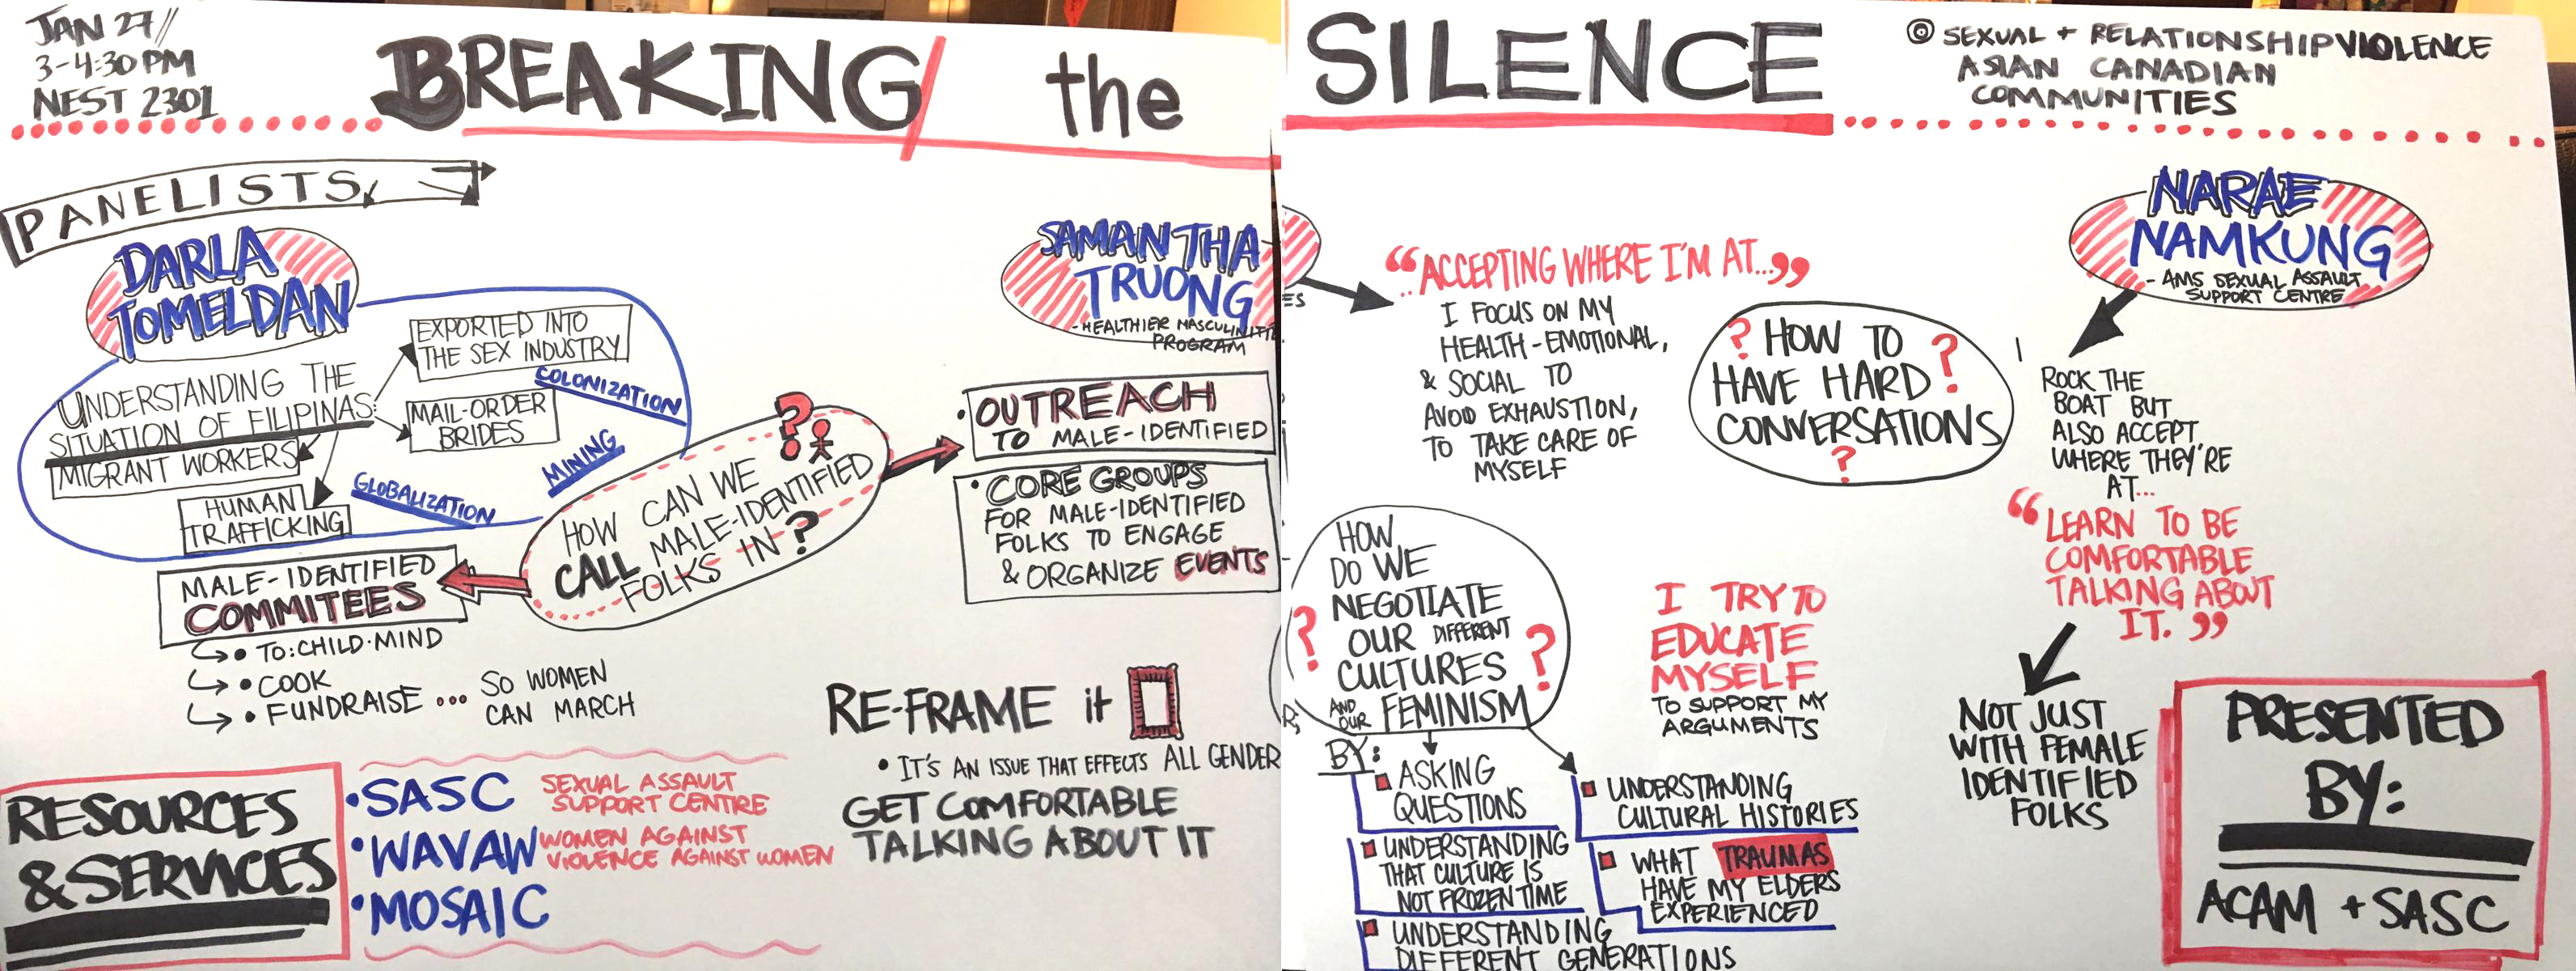 JAN 27//
3-4:30PM
NEST 2301
BREAKING the
SILENCE
@ SEXUAL + RELATIONSHIP VIOLENCE
ASIAN CANADIAN
COMMUNITIES
PANELISTS
DARLA
TOMELDAN
UNDERSTANDING THE
SITUATION OF FILIPINAS:
EXPORTED INTO
THE SEX INDUSTRY
MAIL-ORDER
BRIDES
MIGRANT WORKERS
HUMAN
TRAFFICKING
COLONIZATION
MINING
GLOBALIZATION
HOW CAN WE
CALL MALE-IDENTIFIED
FOLKS IN?
MALE-IDENTIFIED
COMMITEES
• TO: CHILD-MIND
• COOK
• FUNDRAISE ... SO WOMEN
CAN MARCH
SAMANTHA
TRUONG
-HEALTHIER MASCULINITI
PROGRAM
ES
• OUTREACH
TO MALE-IDENTIFIED
• CORE GROUPS
FOR MALE-IDENTIFIED
FOLKS TO ENGAGE
& ORGANIZE EVENTS
RE-FRAME it
• IT'S AN ISSUE THAT EFFECTS ALL GENDER
GET COMFORTABLE
TALKING ABOUT IT
RESOURCES
& SERVICES
• SASC SEXUAL ASSAULT
SUPPORT CENTRE
• WAVAW WOMEN AGAINST
VIOLENCE AGAINST WOMEN
• MOSAIC
"ACCEPTING WHERE I'M AT..."
I FOCUS ON MY
HEALTH-EMOTIONAL,
& SOCIAL TO
AVOID EXHAUSTION,
TO TAKE CARE OF
MYSELF
? HOW TO ?
HAVE HARD
CONVERSATIONS
?
HOW
DO WE
NEGOTIATE
? OUR DIFFERENT ?
CULTURES
AND OUR FEMINISM
R,
BY:
ASKING
QUESTIONS
UNDERSTANDING
THAT CULTURE IS
NOT FROZEN TIME
UNDERSTANDING
DIFFERENT GENERATIONS
UNDERSTANDING
CULTURAL HISTORIES
WHAT TRAUMAS
HAVE MY ELDERS
EXPERIENCED
I TRY TO
EDUCATE
MYSELF
TO SUPPORT MY
ARGUMENTS
NARAE
NAMKUNG
- AMS SEXUAL ASSAULT
SUPPORT CENTRE
ROCK THE
BOAT BUT
ALSO ACCEPT
WHERE THEY'RE
AT...
"LEARN TO BE
COMFORTABLE
TALKING ABOUT
IT."
NOT JUST
WITH FEMALE
IDENTIFIED
FOLKS
PRESENTED
BY:
ACAM + SASC